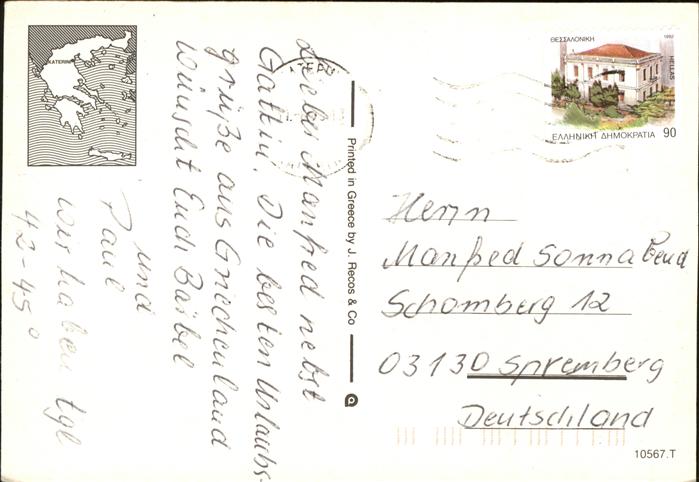 KATERINI
Lieber Manfred nebst
Gattin. Die besten Urlaubs-
grüße aus Griechenland
wünscht Euch Bärbel
und
Paul
Wir haben tgl
42-45°
Printed in Greece by J. Recos & Co
ΘΕΣΣΑΛΟΝΙΚΗ
1992
HELLAS
ΕΛΛΗΝΙΚΗ ΔΗΜΟΚΡΑΤΙΑ 90
Herrn
Manfred Sonnabend
Schomberg 12
03130 Spremberg
Deutschland
10567.T